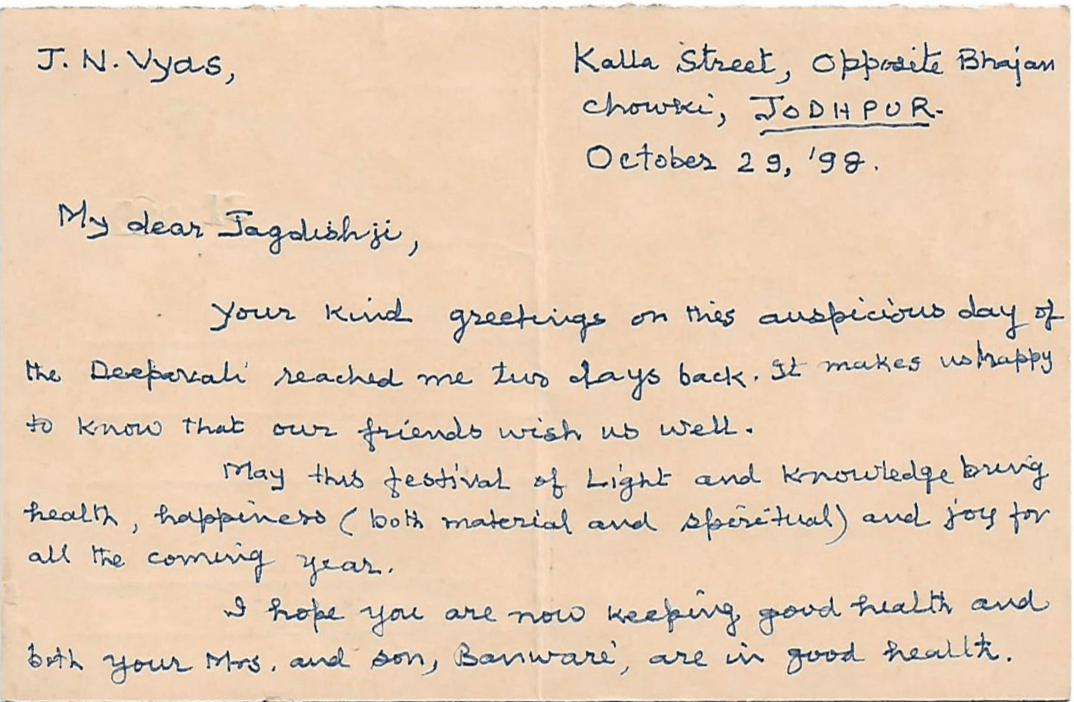 J. N. Vyas,
Kalla Street, Opposite Bhajan
Chowki, JODHPUR.
October 29, '98.
My dear Jagdishji,
Your kind greetings on this auspicious day of
the Deepavali reached me two days back. It makes us happy
to know that our friends wish us well.
May this festival of Light and Knowledge bring
health, happiness (both material and spiritual) and joy for
all the coming year.
I hope you are now keeping good health and
both your Mrs. and son, Banwari, are in good health.